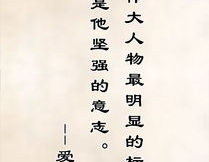 大人物最明显的标
是他坚强的意志。
——爱